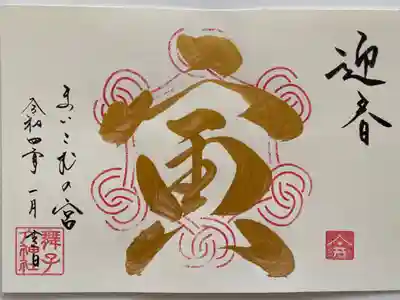 迎春
寅
まいこむの宮
令和四年 一月
吉日
舞子
六神社